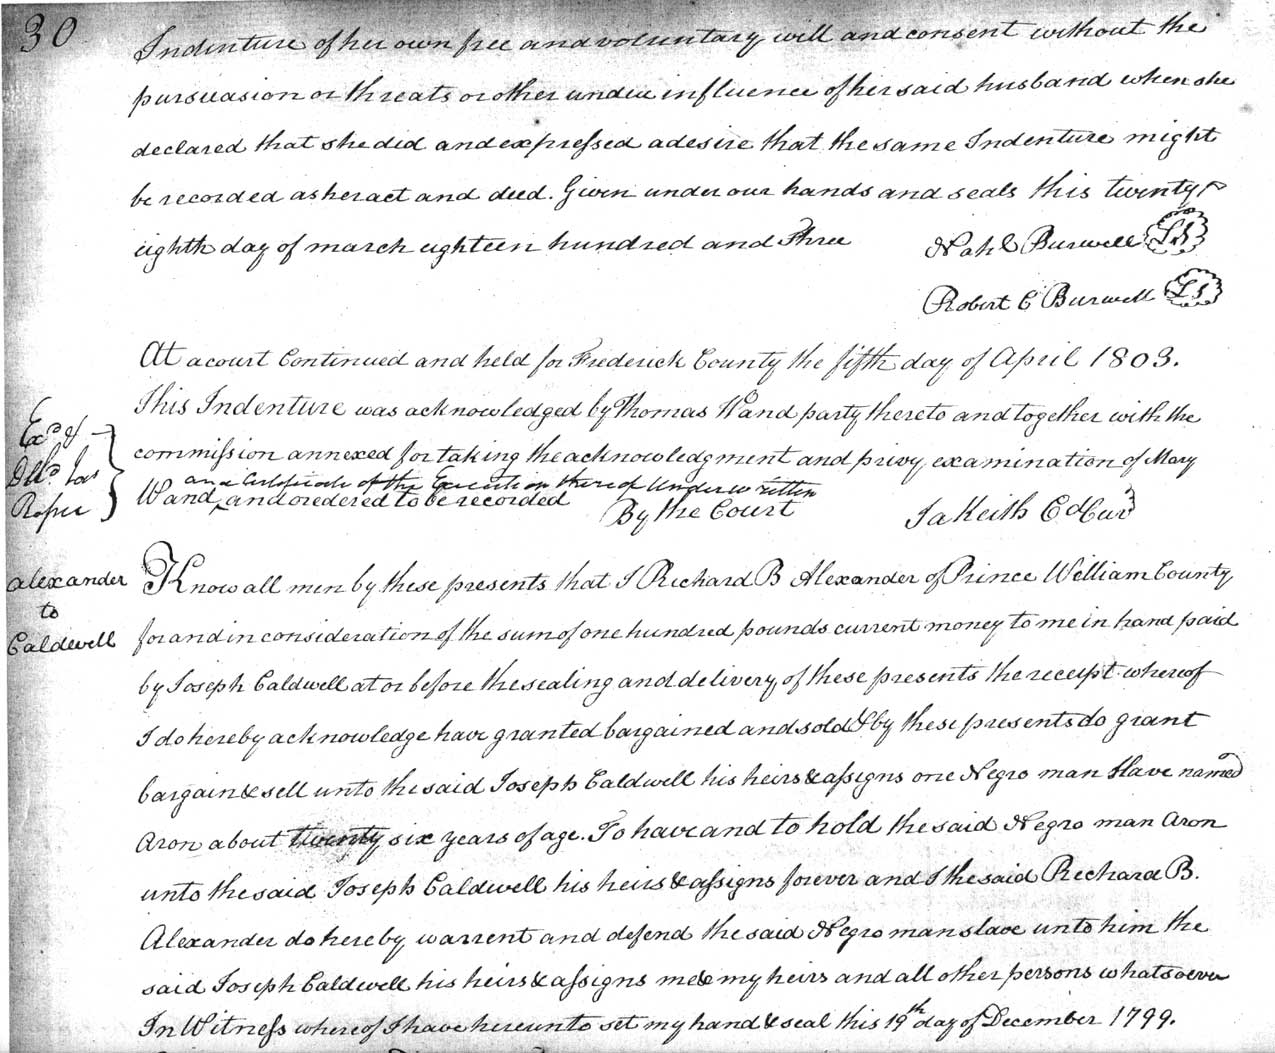 30
Indenture of her own free and voluntary will and consent without the
pursuasion or threats or other undue influence of her said husband when she
declared that she did and expressed a desire that the same Indenture might
be recorded as her act and deed. Given under our hands and seals this twenty
eighth day of march eighteen hundred and Three
Nath Burwell LS
Robert C Burwell LS
At a court Continued and held for Frederick County the fifth day of April 1803.
This Indenture was acknowledged by Thomas Wand party thereto and together with the
commission annexed for taking the acknowledgment and privy examination of Mary
and Certificate of the Execution thereof Underwritten
Wand, and ordered to be recorded
By the Court
Ja Keith Cd Cur
Exd &
Dld
alexander
to
Caldwell
Know all men by these presents that I Richard B Alexander of Prince William County
for and in consideration of the sum of one hundred pounds current money to me in hand paid
by Joseph Caldwell at or before the sealing and delivery of these presents the receipt whereof
I do hereby acknowledge have granted bargained and sold & by these presents do grant
bargain & sell unto the said Joseph Caldwell his heirs & assigns one Negro man Slave named
Aron about twenty six years of age. To have and to hold the said Negro man Aron
unto the said Joseph Caldwell his heirs & assigns forever and I the said Richard B.
Alexander do hereby warrent and defend the said Negro man slave unto him the
said Joseph Caldwell his heirs & assigns me & my heirs and all other persons whatsoever
In Witness whereof I have hereunto set my hand & seal this 19th day of December 1799.